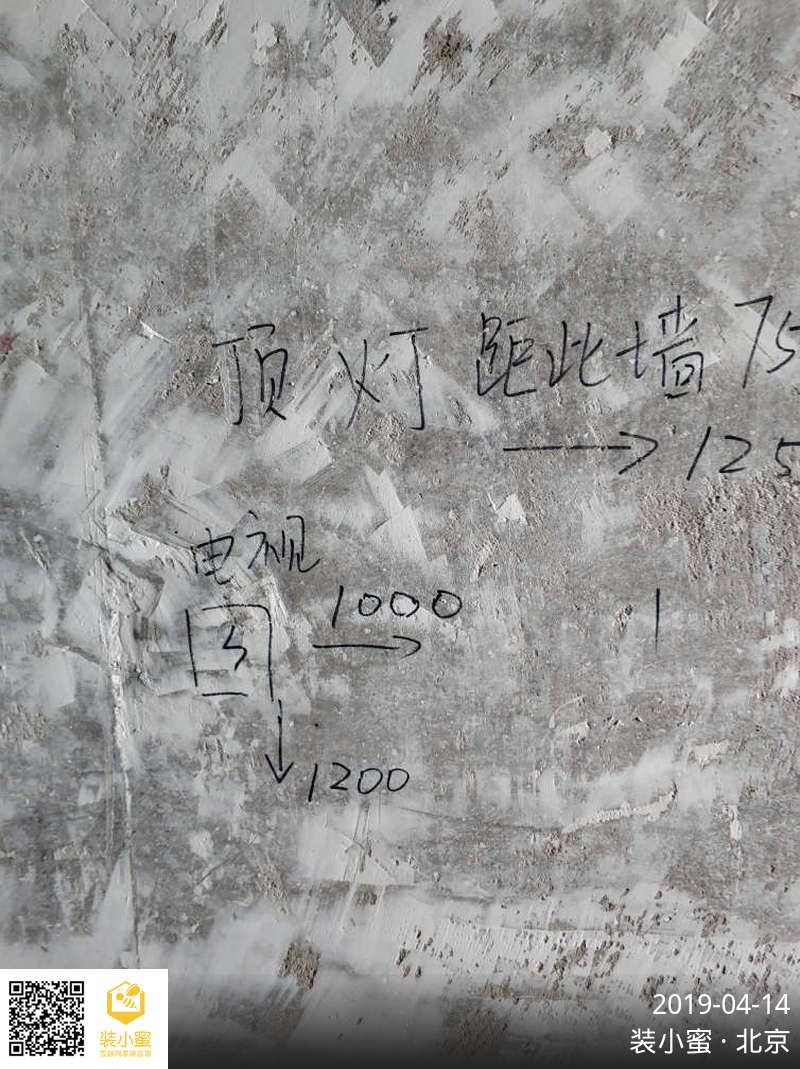 顶灯 距此墙 75
→ 125
电视
1000
→
↓ 1200
装小蜜
互联网家装监理
2019-04-14
装小蜜 · 北京